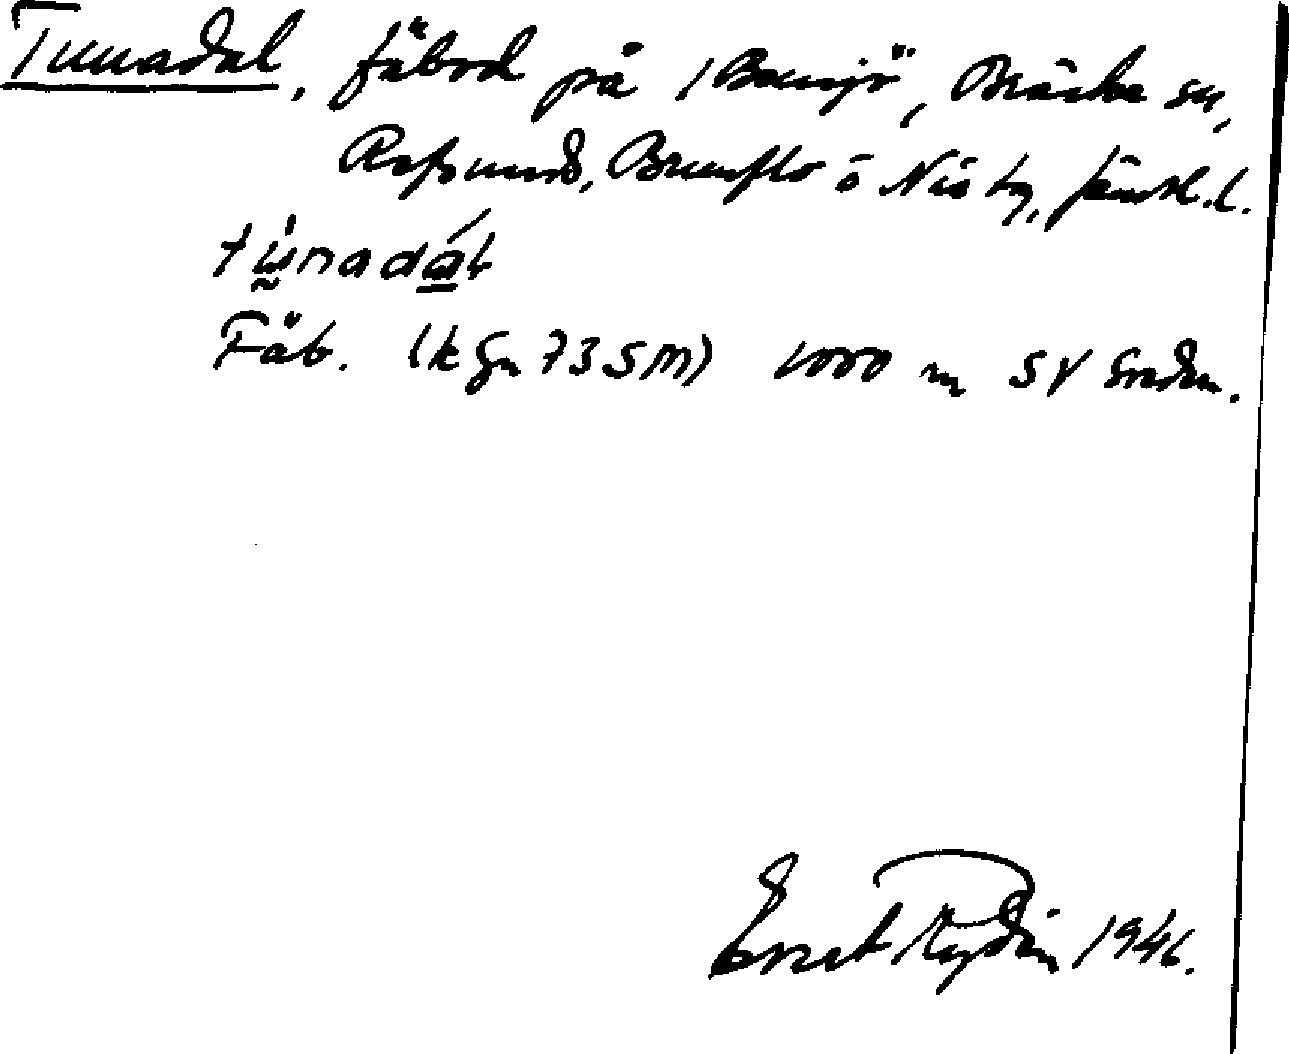 Tunadal, fäbod på Bensjö, Bräcke sn,
Refsund, Brunflo o Näs tg, Jämtl. l.
tùnadát
Fäb. (k gn 735 m) 1000 m SV
Ernst Rydén 1946.